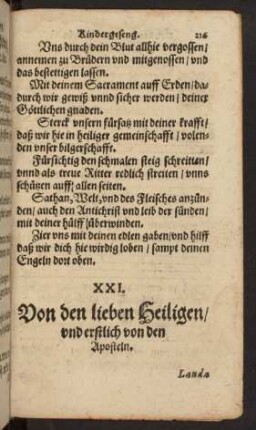 Kindergeseng. 216
Vns durch dein Blut allhie vergossen/
annemen zu Brüdern vnd mitgenossen/ vnd
das bestettigen lassen.
Mit deinem Sacrament auff Erden/ da-
durch wir gewiß vnnd sicher werden/ deiner
Göttlichen gnaden.
Sterck vnsern fürsatz mit deiner krafft/
daß wir hie in heiliger gemeinschafft/ volen-
den vnser bilgerschafft.
Fürsichtig den schmalen steig schreitten/
vnnd als trewe Ritter redlich streiten/ vnns
schützen auff allen seiten.
Sathan, Welt, vnd des Fleisches anzün-
den/ auch den Antichrist vnd leib der sünden/
mit deiner hülff überwinden.
Zier vns mit deinen edlen gaben/ vnd hilff
daß wir dich hie wirdig loben/ sampt deinen
Engeln dort oben.
XXI.
Von den lieben Heiligen/
vnd erstlich von den
Aposteln.
Landa